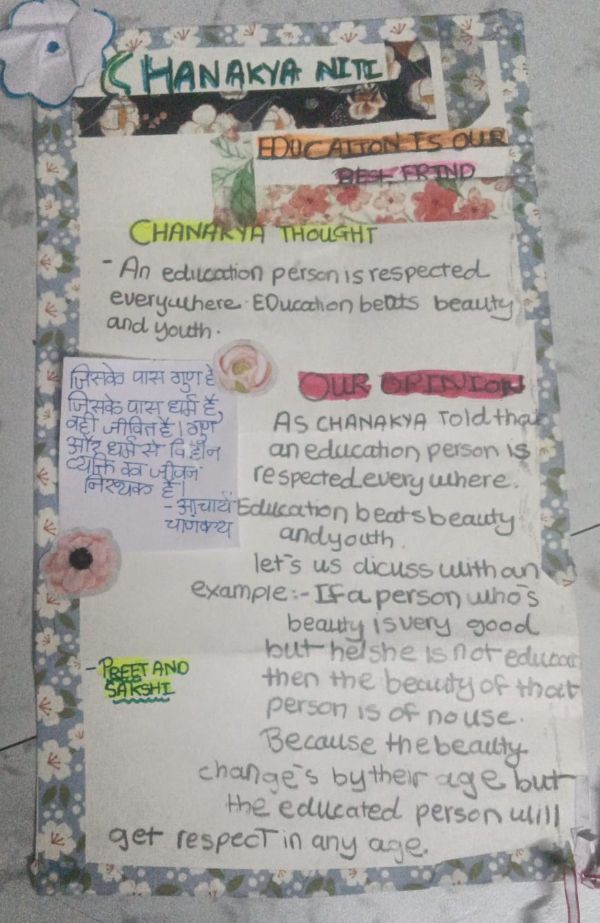 CHANAKYA NITI
EDUCAITON IS OUR
BEST FRIND
CHANAKYA THOUGHT
- An education person is respected
everywhere. EDucation beats beauty
and youth.
जिसके पास गुण है
जिसके पास धर्म है,
वही जीवित है। गुण
और धर्म से विहीन
व्यक्ति का जीवन
निरथक है।
- आचार्य
चाणक्य
OUR OPINION
AS CHANAKYA Told that
an education person is
respected every where.
Education beats beauty
and youth.
let's us dicuss with an
example:- If a person who's
beauty is very good
but he/she is not educa
then the beauty of that
person is of no use.
Because the beauty
change's by their age but
the educated person will
get respect in any age.
- PREET AND
SAKSHI